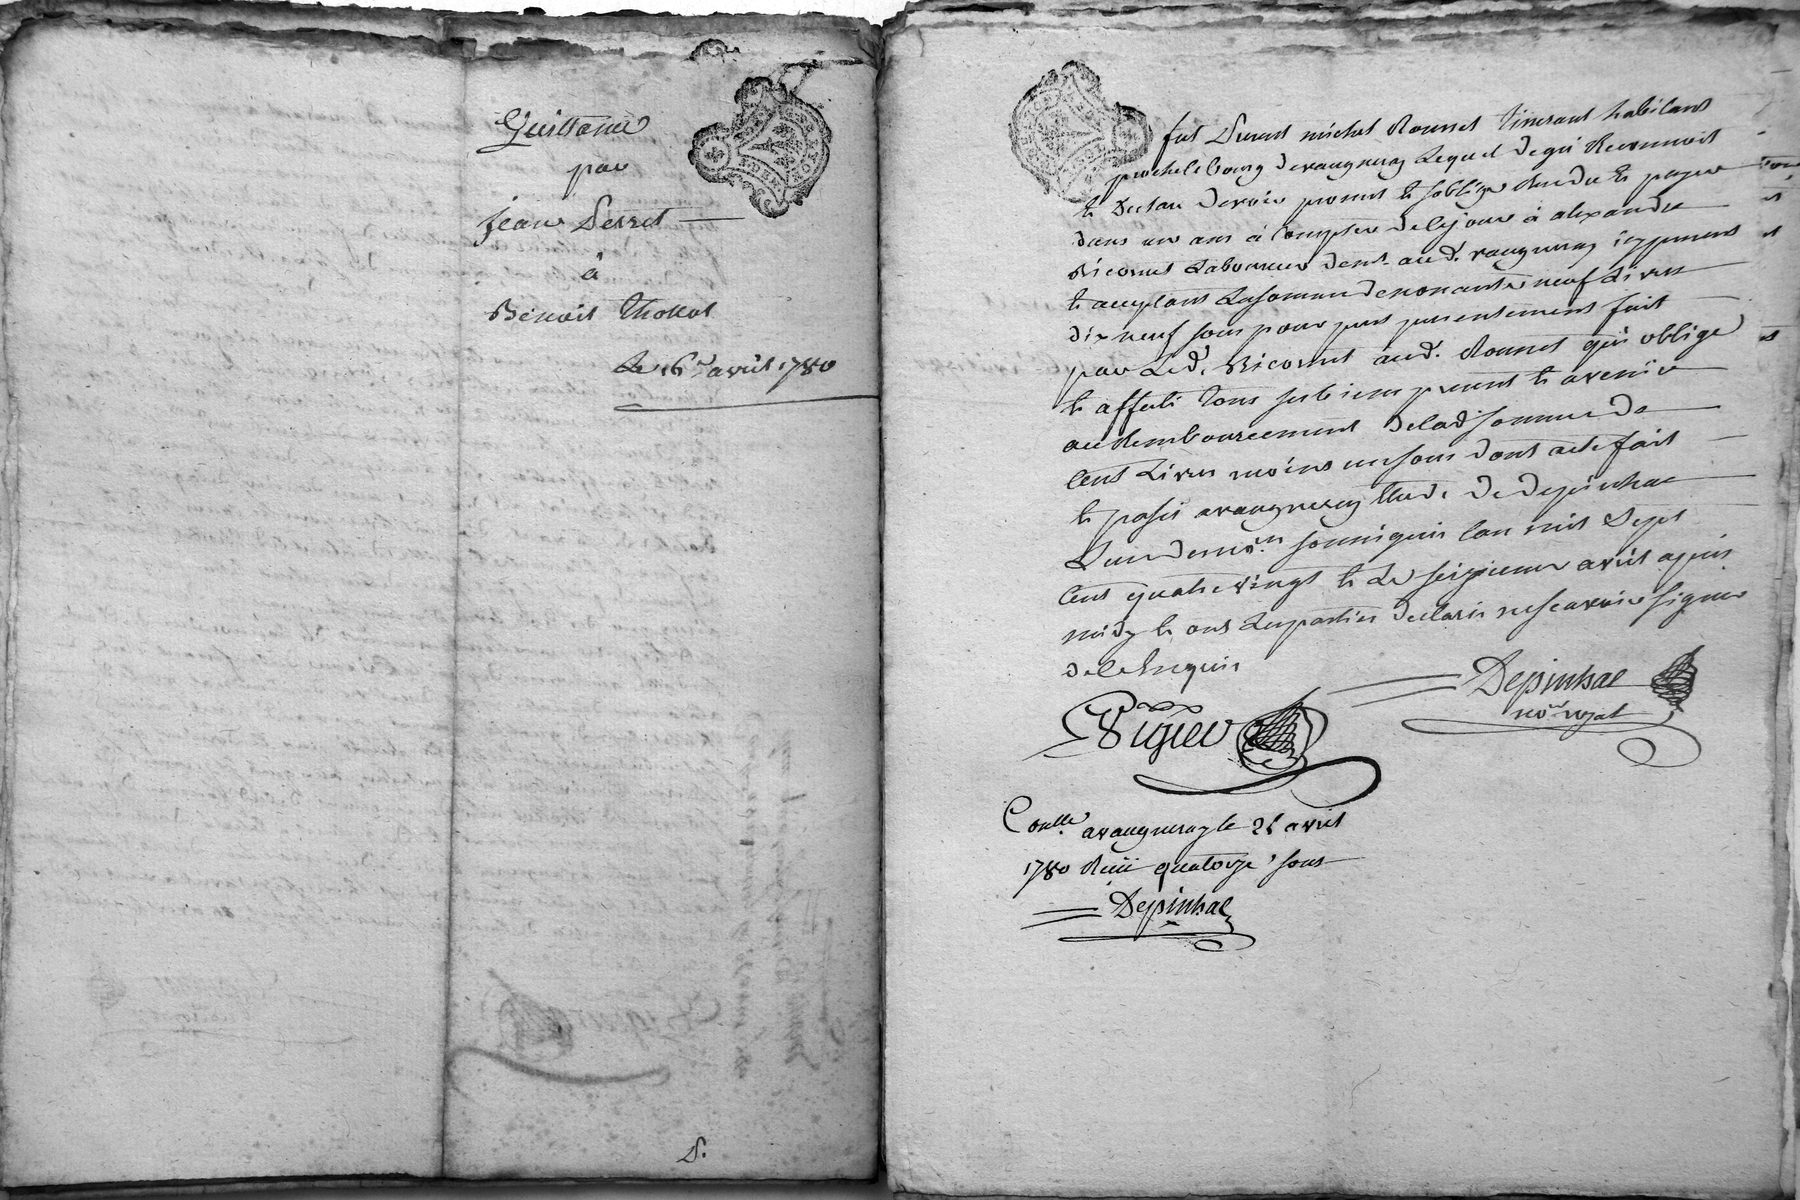 Quittance
par
Jean Perret
à
Benoit Thollot
Le 16e avril 1780
fut présent michel Rounet tisserant habitant
proche le bourg de vaugneray Lequel de gré Reconnoit
et Declare devoir promet et soblige Rendre et payer
dans un ans à Compter de ce jour à alexandre
Ricornet Laboureur demt. aud. vaugneray icy present
et acceptant La somme de nonante neuf Livres
dix neuf sous pour prest presentement fait
par Led. Ricornet aud. Rounet qui oblige
et affecte tous ses biens present et avenir
au Remboursement de lad somme de
Cent Livres moins un sous dont acte fait
et passé a vaugneray Etude de depinhac
L'un des nores. soussignés l'an mil Sept
Cent quatre vingt et Le seizieme avril après
midy et ont Les parties declaré ne scavoir signer
de ce Enquis
Depinhac
nore. royal
Vigier
Conllé. a vaugneray le 26 avril
1780 Reçu quatorze sous
Depinhac